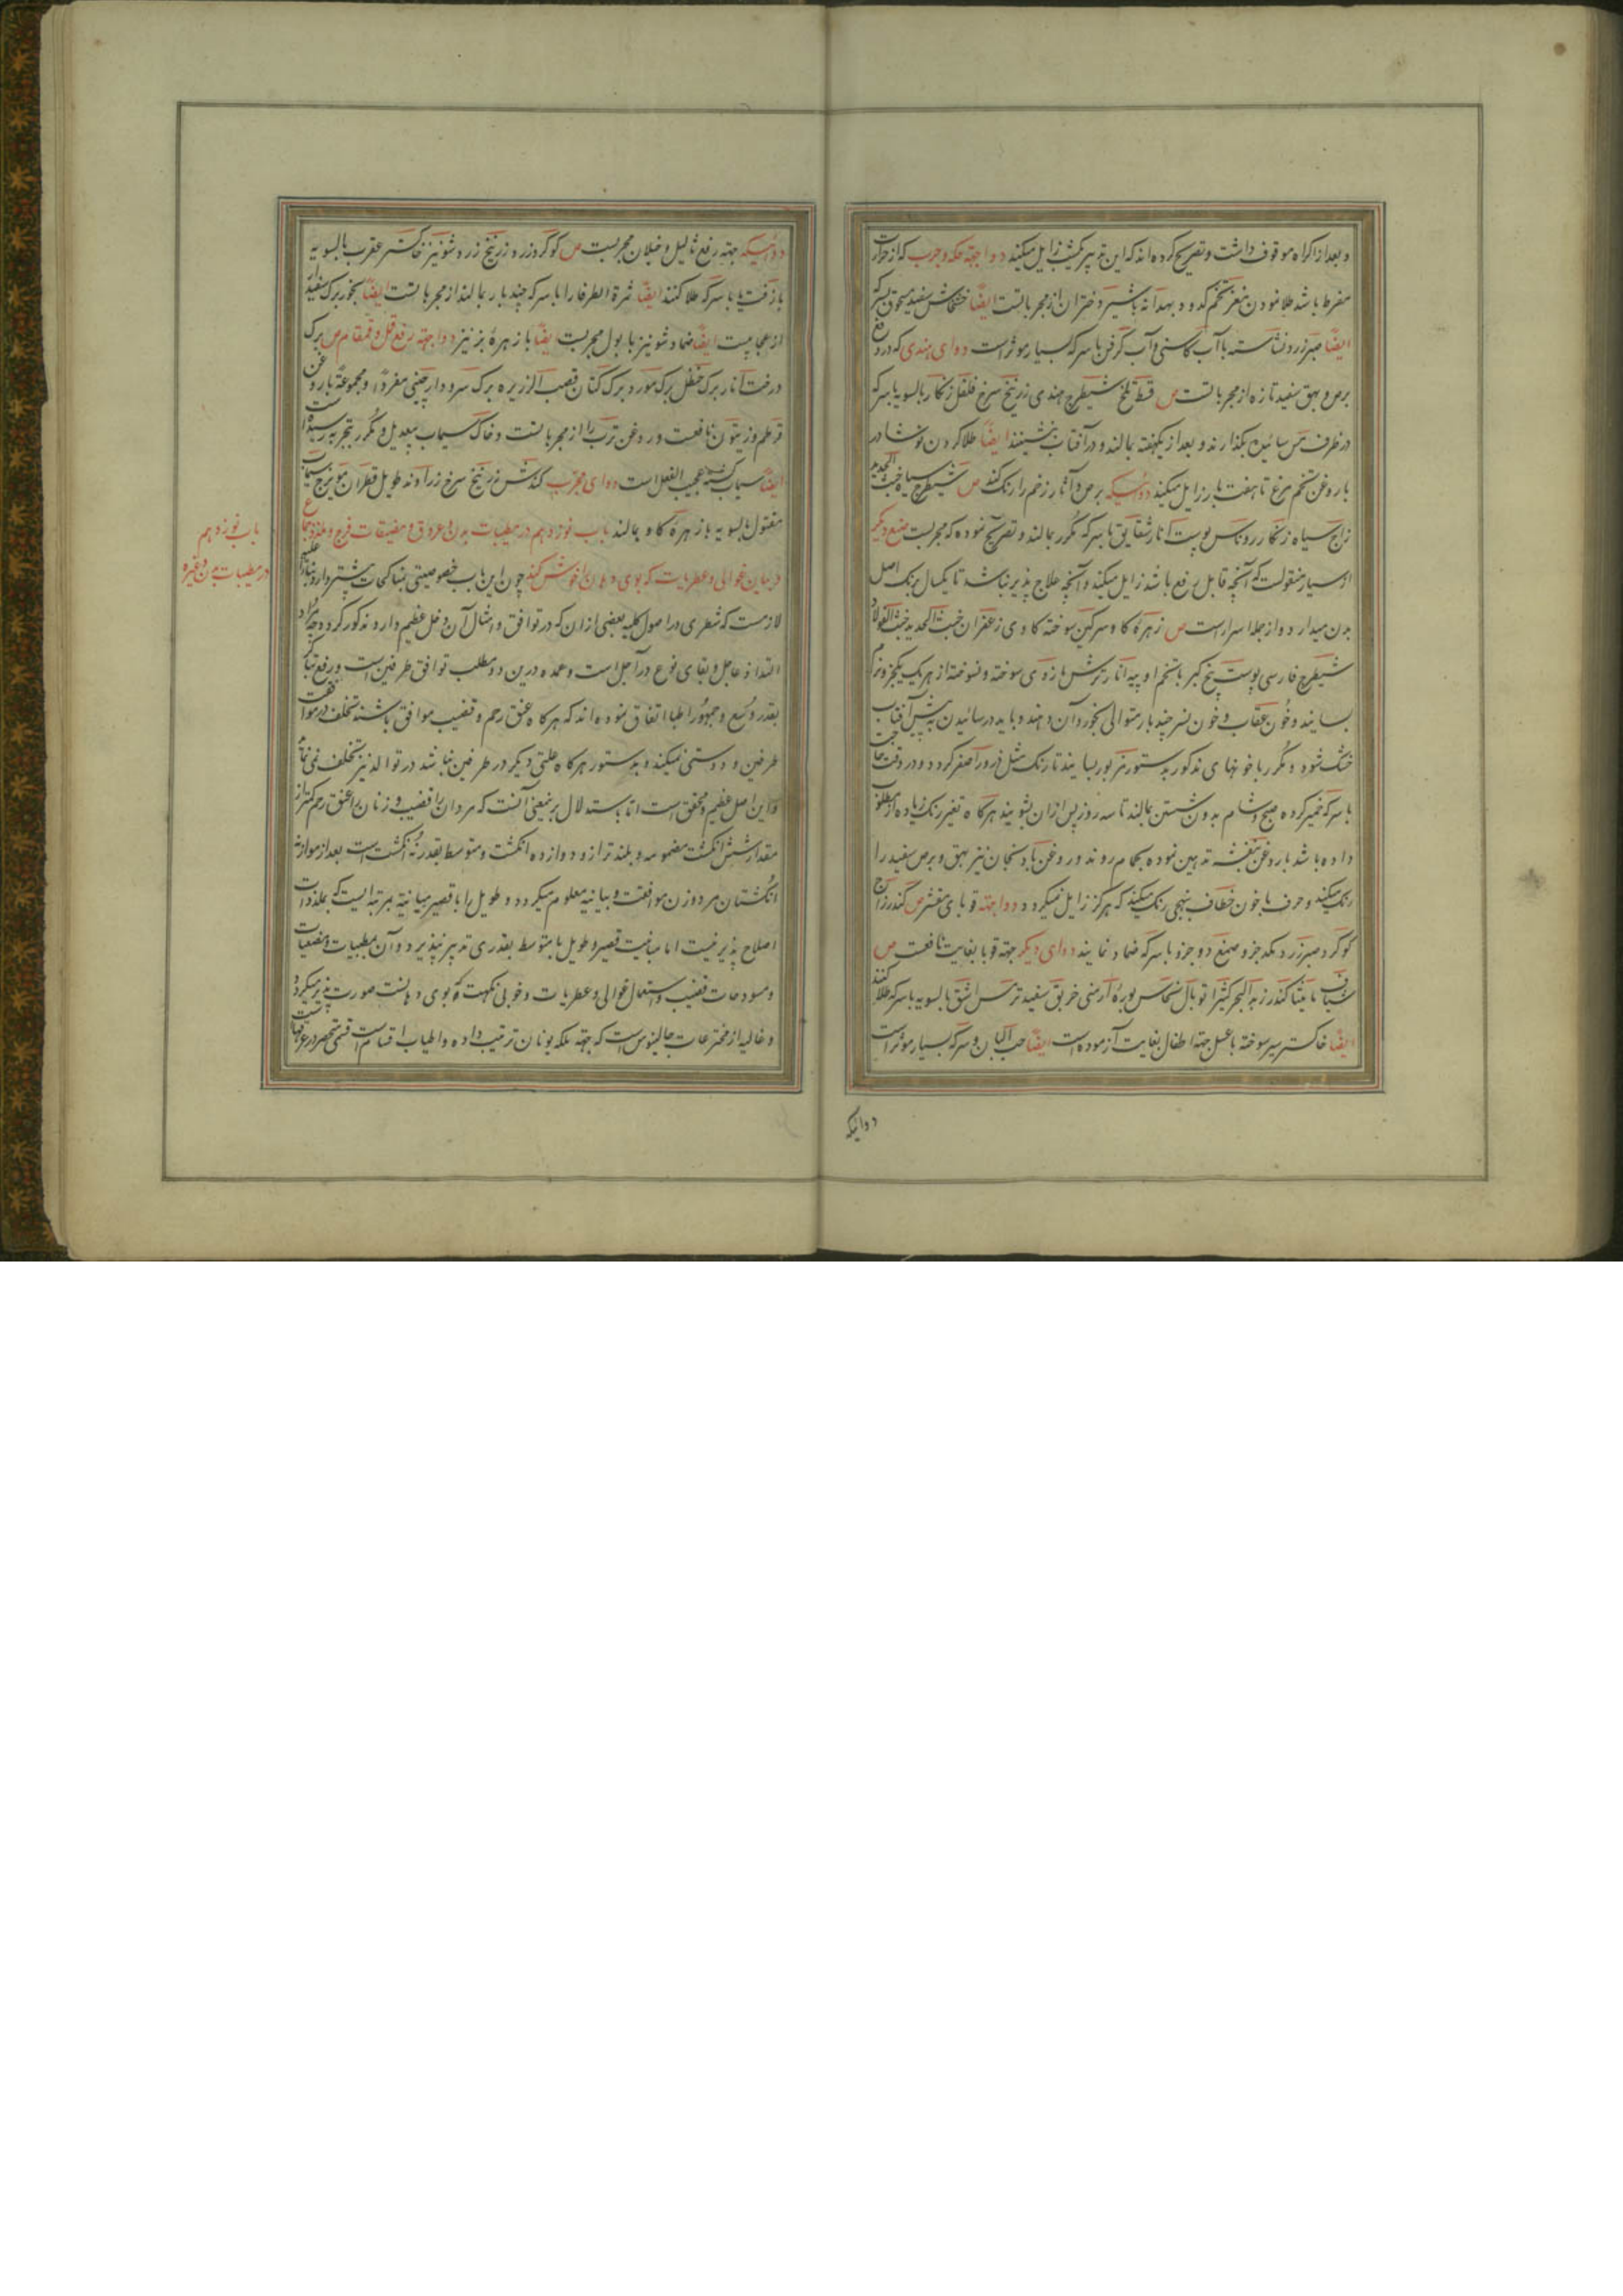 و بعد از اکراه موقوف داشت و تصریح کرده‌اند که این تدبیر یکشب زایل میکند دوا جهته حکه و جرب که از حرارت
مفرط باشد طلا نمودن مغز تخم کدو و بهدانه با شیر دختران از مجربا تست ایضًا خشخاش سفید مسحوق بسرکه
ایضًا صبر زرد و نشاسته با آب کاسنی و آب کرفس با سرکه بسیار موثر است دوای هندی که در رفع
برص و بهق سفید تازه از مجربا تست ص قسط تلخ شیطرج هندی زرنیخ سرخ فلفل زنکار بالسویه با سرکه
در ظرف مس سائیده بکذارند و بعد از یکهفته بمالند و در آفتاب بنشینند ایضًا طلا کردن نوشادر
با روغن تخم مرغ تا هفت بار زایل میکند دوائیکه برص و آثار زخم را رنک کند ص شیطرج سیاه خبث الحدید
زاج سیاه زنکار روناس پوست انار شقایق با سرکه مکرر بمالند و تصریح نموده که مجربست صنع دیکر
از سیار منقولست که آنچه قابل رفع باشد زایل میکند و آنچه علاج پذیر نباشد تا یکسال برنک اصل
بدن میدارد و از جمله اسرار است ص زهره کاو سرکین سوخته کاوی زعفران خبث الحدید خبث الفولاد
شیطرج فارسی پوست بیخ کبر با تخم او پیه انار ترش مازوی سوخته و نسوخته از هریک یکجزو نرم
بسایند و خون عقاب و خون نسر چند بار متوالی بخورد آن دهند و باید در سائیدن به پیش آفتاب
خشک شود و مکرر با خونهای مذکور بدستور مزبور بسایند تا رنک مثل فرور اصفر کردد و در وقت حاجت
با سرکه خمیر کرده صبح و شام بدون شستن بمالند تا سه روز پس از آن بشویند هرکاه تغیر رنک زیاده از مطلوب
داده باشد با روغن بنفشه تدهین نموده بحمام روند و روغن بادنجان نیز بهق و برص سفید را
رنک میکند و حرف با خون خطاف بنهجی رنک میکند که هرکز زایل نمیکردد دوا جهته قوبای متقشر ص کندر زاج
کوکرد صبر زرد یکجزو صمغ دو جزو با سرکه ضماد نمایند دوای دیکر جهته قوبا بغایت نافعست ص
شیاف مامیثا کندر زبد البحر کثیرا توبال نحاس بوره ارمنی خربق سفید ترمس اشق بالسویه با سرکه طلا کنند
ایضًا خاکستر سیر سوخته با عسل جهته اطفال بغایت آزموده است ایضًا حب البان و سرکه بسیار موثر است
دوائیکه
دوائیکه جهته رفع ثالیل و خیلان مجربست ص کوکرد زرد زرنیخ زرد شونیز خاکستر عقرب بالسویه
با زفت یا با سرکه طلا کنند ایضًا ثمرة الطرفا را با سرکه چند بار بمالند از مجربا تست ایضًا بخور برک سفیدار
از عجایبست ایضًا ضماد شونیز با بول مجربست ایضًا با زهره بز نیز دوا جهته رفع قمل و قمقام ص برک
درخت انار برک حنظل برک مورد برک کتان قصب الزریره برک سرو دارچینی مفردًا و مجموعةً با روغن
قرطم و زیتون نافعست و روغن ترب را از مجربا تست و خاک سیماب بیعدیل و مکرر بتجربه رسیده است
ایضًا سیماب کشته عجیب الفعل است دوای مجرب کندش زرنیخ سرخ زراوند طویل قطران مویزج سیماب
مقتول بالسویه با زهره کاو بمالند باب نوزدهم در مطیبات بدن و عروق و مضیقات فرج و ملذذ جماع
در بیان غوالی و عطریات که بوی دهان را خوش کند چون این باب خصوصیتی بمناکحات بیشتر دارد بنابرآن
لازمست که شطری در اصول کلیه بعضی از آن که در توافق و امثال آن دخل عظیم دارد مذکور کردد چه مراد
التذاذ عاجل و بقای نوع در آجل است و عمده درین دو مطلب توافق طرفین است و رفع تباکر
بقدر وسع و جمهور اطبا اتفاق نموده‌اند که هرکاه عنق رحم و قضیب موافق باشند تخلف در موافقت
طرفین و دوستی نمیکند و بدستور هرکاه علتی دیکر در طرفین نباشد در توالد نیز تخلف نمی‌نماید
و این اصل عظیم و محقق است اما باستدلال بر معنی آنست که مردان را قضیب و زنان را عنق رحم کمتر از
مقدار شش انکشت مضمومه و بلندتر از دوازده انکشت و متوسط بقدر نه انکشت است بعد از موازنه
انکشتان مرد و زن موافقت و مباینه معلوم میکردد و طویل را با قصیر مباینه بمرتبه ایست که بملذذات
اصلاح پذیر نیست اما مباینت قصیر و طویل با متوسط بقدری تدبیر پذیرد و آن بمطیبات و مضیقات
و مسوحات قضیب و استعمال غوالی و عطریات و خوبی نکهت که بوی دهانست صورت پذیر میکردد
و غالیه از مخترعات جالینوس است که جهته ملکه یونان ترتیب داده و اطیاب اقسام است قسمی منحصر در عرقهاست
باب نوزدهم
در مطیبات بدن و غیره